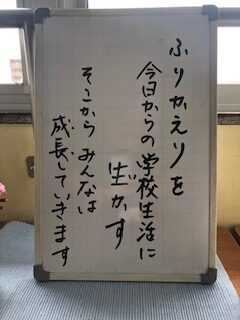 ふりかえりを
今日からの学校生活に
生かす
そこからみんなは
成長していきます